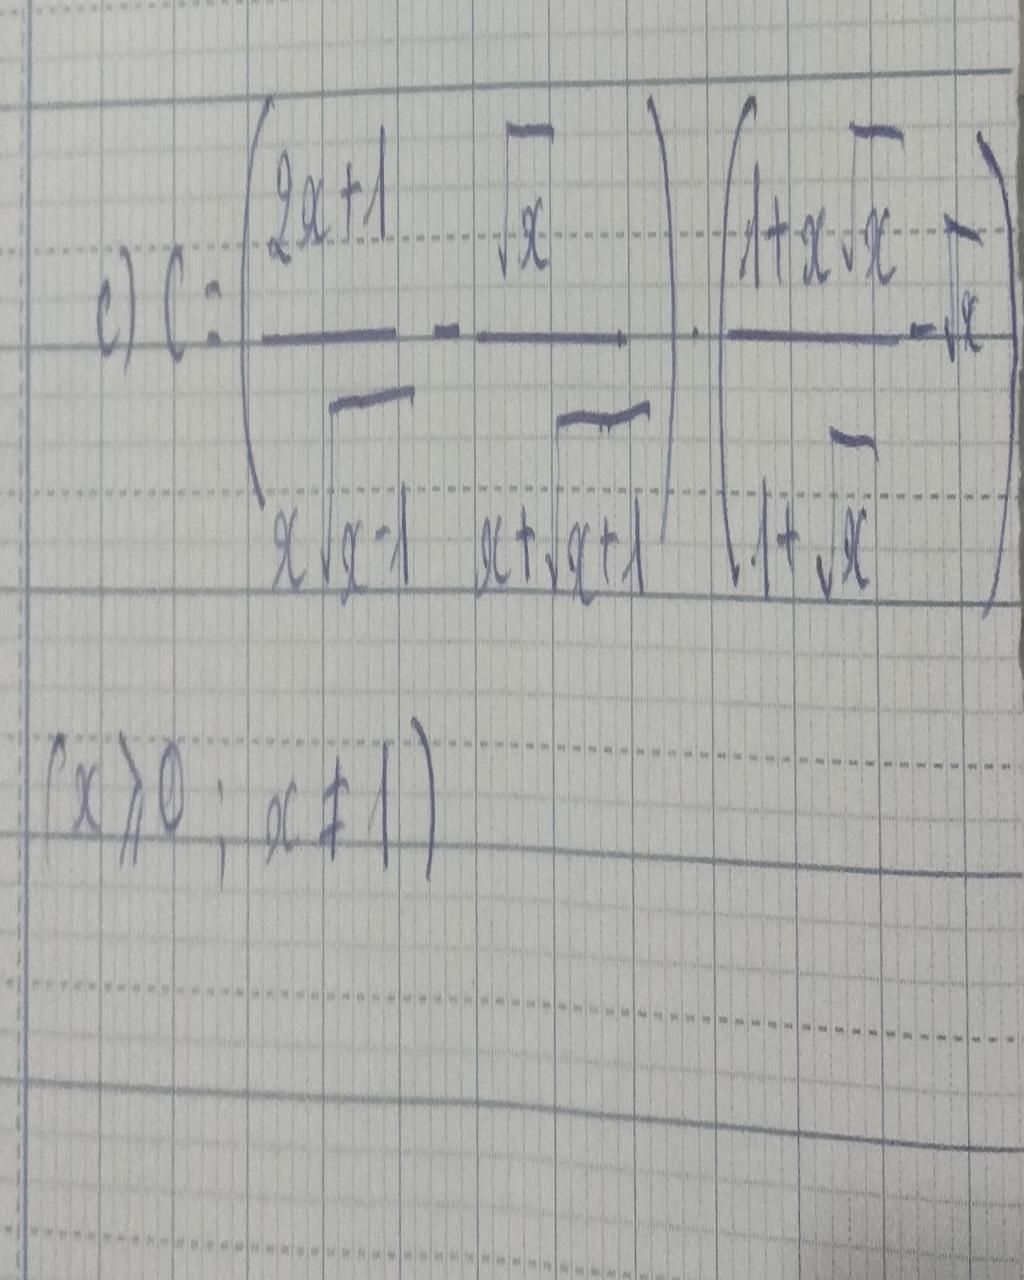 c) C = ( (2x+1)/(x√x-1) - √x/(x+√x+1) ) . ( (1+x√x)/(1+√x) - √x )
(x ⩾ 0 ; x ≠ 1)